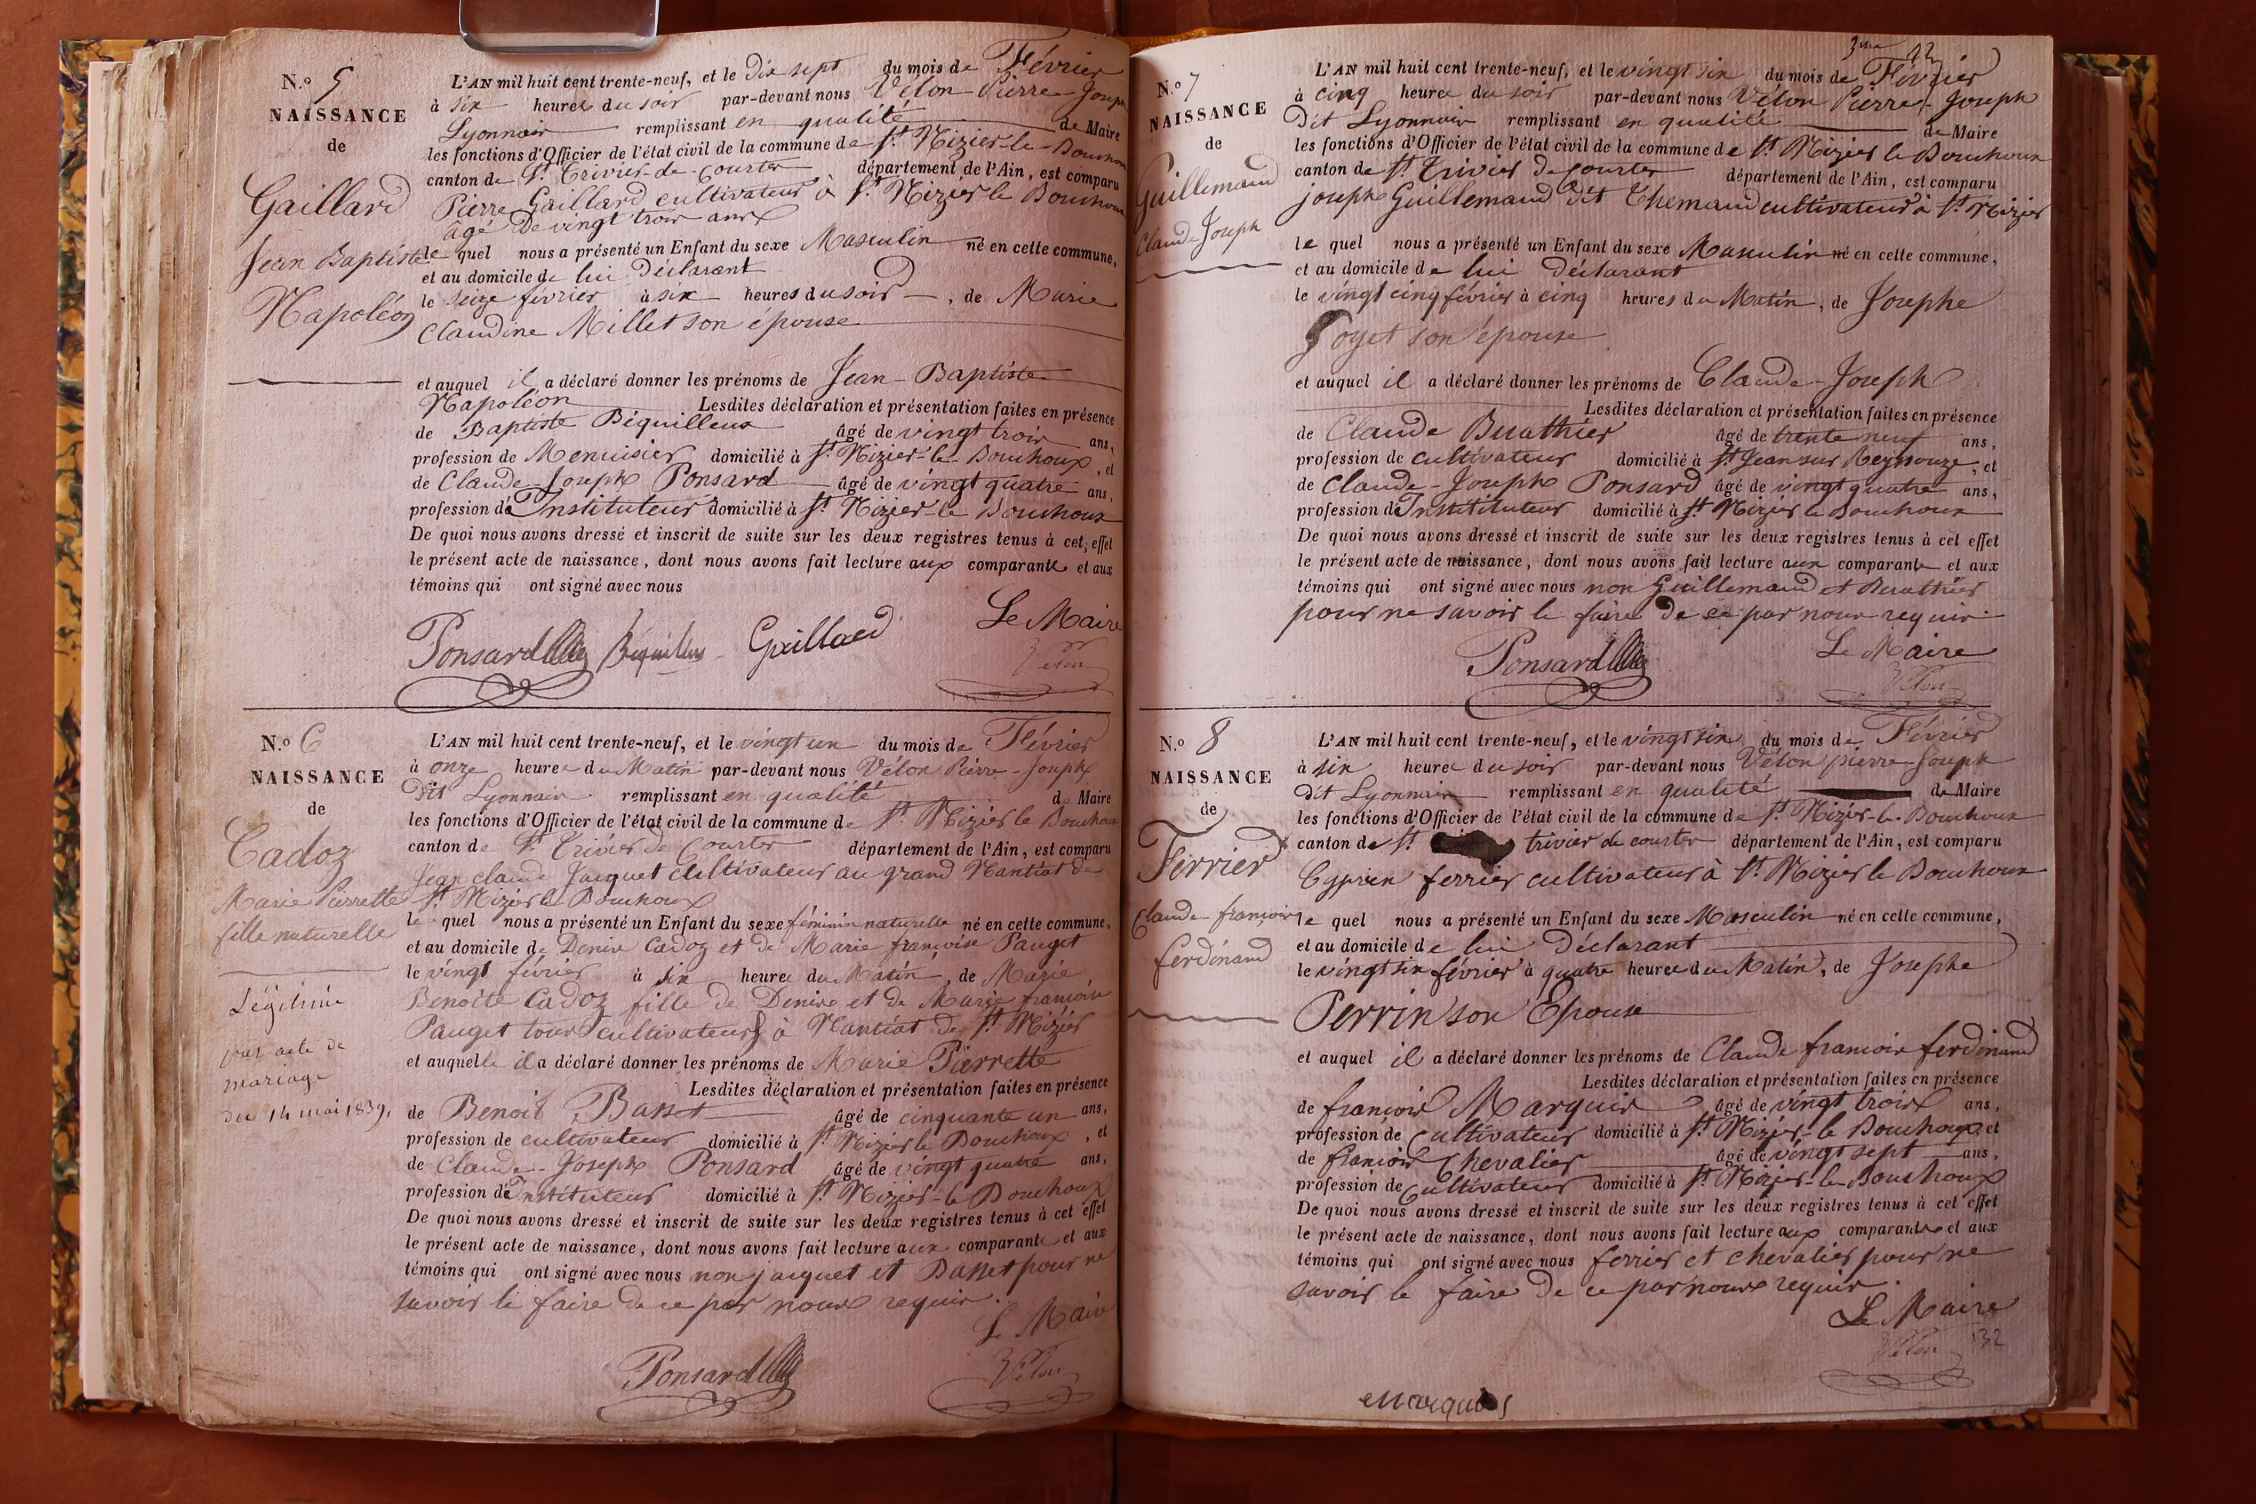 N.º 5
NAISSANCE
de
Gaillard
Jean Baptiste
Napoléon
L'AN mil huit cent trente-neuf, et le Dix sept du mois de Février
à six heures du soir par-devant nous Vélon Pierre Joseph
Lyonnais remplissant en qualité de Maire
les fonctions d'Officier de l'état civil de la commune de St. Nizier-le-Bouchoux
canton de St. Trivier-de-Courtes département de l'Ain, est comparu
Pierre Gaillard cultivateur à St. Nizier le Bouchoux
âgé de vingt trois ans
le quel nous a présenté un Enfant du sexe Masculin né en cette commune,
et au domicile de lui Déclarant
le seize février à six heures du soir, de Marie
Claudine Millet son épouse
et auquel il a déclaré donner les prénoms de Jean-Baptiste
Napoléon Lesdites déclaration et présentation faites en présence
de Baptiste Béquilleux âgé de vingt trois ans,
profession de Menuisier domicilié à St. Nizier-le-Bouchoux, et
de Claude-Joseph Ponsard âgé de vingt quatre ans,
profession de Instituteur domicilié à St. Nizier-le Bouchoux
De quoi nous avons dressé et inscrit de suite sur les deux registres tenus à cet effet
le présent acte de naissance, dont nous avons fait lecture aux comparants et aux
témoins qui ont signé avec nous
Le Maire
Ponsard Béquilleux Gaillard
Vélon
N.º 6
NAISSANCE
de
Cadoz
Marie Pierrette
fille naturelle
Légitimée
par acte de
mariage
du 14 mai 1839.
L'AN mil huit cent trente-neuf, et le vingt un du mois de Février
à onze heures du Matin par-devant nous Vélon Pierre-Joseph
Dit Lyonnais remplissant en qualité de Maire
les fonctions d'Officier de l'état civil de la commune de St. Nizier le Bouchoux
canton de St. Trivier de Courtes département de l'Ain, est comparu
Jean claude Jacquet cultivateur au grand Nantiat de
St. Nizier le Bouchoux
le quel nous a présenté un Enfant du sexe féminin naturelle né en cette commune,
et au domicile de Denise Cadoz et de Marie françoise Pauget
le vingt février à six heures du Matin, de Marie
Benoîte Cadoz fille de Denise et de Marie françoise
Pauget tous cultivateurs à Nantiat de St. Nizier
et auquelle il a déclaré donner les prénoms de Marie Pierrette
Lesdites déclaration et présentation faites en présence
de Benoit Basset âgé de cinquante un ans,
profession de cultivateur domicilié à St. Nizier le Bouchoux, et
de Claude-Joseph Ponsard âgé de vingt quatre ans,
profession de Instituteur domicilié à St. Nizier-le Bouchoux
De quoi nous avons dressé et inscrit de suite sur les deux registres tenus à cet effet
le présent acte de naissance, dont nous avons fait lecture aux comparants et aux
témoins qui ont signé avec nous non jacquet et Basset pour ne
savoir le faire de ce par nous requis.
Le Maire
Ponsard Vélon
3me 12
N.º 7
NAISSANCE
de
Guillemaud
Claude Joseph
L'AN mil huit cent trente-neuf, et le vingt six du mois de Février
à cinq heures du soir par-devant nous Vélon Pierre-Joseph
Dit Lyonnais remplissant en qualité de Maire
les fonctions d'Officier de l'état civil de la commune de St. Nizier le Bouchoux
canton de St. Trivier de Courtes département de l'Ain, est comparu
joseph Guillemaud dit Themaud cultivateur à St. Nizier
le quel nous a présenté un Enfant du sexe Masculin né en cette commune,
et au domicile de lui déclarant
le vingt cinq février à cinq heures du Matin, de Josephe
Goyet son épouse
et auquel il a déclaré donner les prénoms de Claude-Joseph
Lesdites déclaration et présentation faites en présence
de Claude Buathier âgé de trente neuf ans,
profession de cultivateur domicilié à St. Jean sur Reyssouze, et
de Claude-Joseph Ponsard âgé de vingt quatre ans,
profession de Instituteur domicilié à St. Nizier le Bouchoux
De quoi nous avons dressé et inscrit de suite sur les deux registres tenus à cet effet
le présent acte de naissance, dont nous avons fait lecture aux comparants et aux
témoins qui ont signé avec nous non Guillemaud et Buathier
pour ne savoir le faire de ce par nous requis
Le Maire
Ponsard Vélon
N.º 8
NAISSANCE
de
Ferrier
Claude françois
ferdinand
L'AN mil huit cent trente-neuf, et le vingt six du mois de Février
à six heures du soir par-devant nous Vélon pierre-Joseph
Dit Lyonnais remplissant en qualité de Maire
les fonctions d'Officier de l'état civil de la commune de St. Nizier-le-Bouchoux
canton de St. trivier de courtes département de l'Ain, est comparu
Cyprien ferrier cultivateur à St. Nizier le Bouchoux
le quel nous a présenté un Enfant du sexe Masculin né en cette commune,
et au domicile de lui Déclarant
le vingt six février à quatre heures du Matin, de Josephe
Perrin son Epouse
et auquel il a déclaré donner les prénoms de Claude francois ferdinand
Lesdites déclaration et présentation faites en présence
de françois Marquis âgé de vingt trois ans,
profession de Cultivateur domicilié à St. Nizier-le Bouchoux, et
de françois Chevalier âgé de vingt sept ans,
profession de Cultivateur domicilié à St. Nizier-le Bouchoux
De quoi nous avons dressé et inscrit de suite sur les deux registres tenus à cet effet
le présent acte de naissance, dont nous avons fait lecture aux comparants et aux
témoins qui ont signé avec nous ferrier et chevalier pour ne
savoir le faire de ce par nous requis.
Le Maire
Vélon 132
Marquis